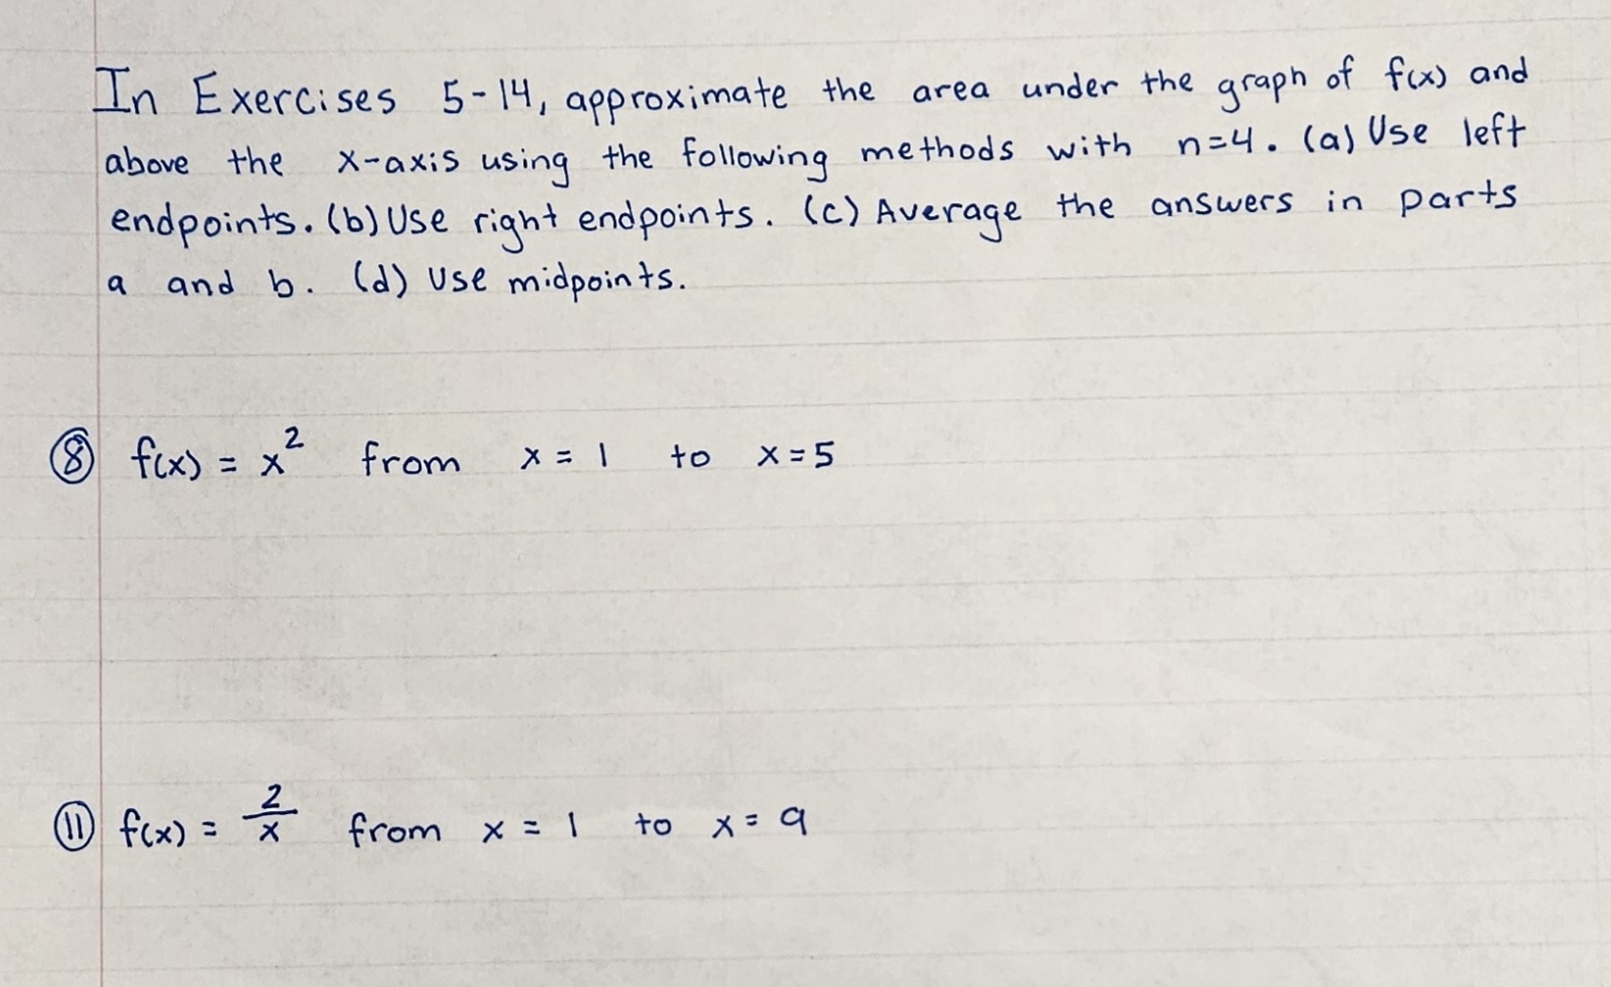 In Exercises 5-14, approximate the area under the graph of f(x) and
above the x-axis using the following methods with n=4. (a) Use left
endpoints. (b) Use right endpoints. (c) Average the answers in parts
a and b. (d) Use midpoints.
⑧ f(x) = x² from x = 1 to x = 5
⑪ f(x) = 2/x from x = 1 to x = 9